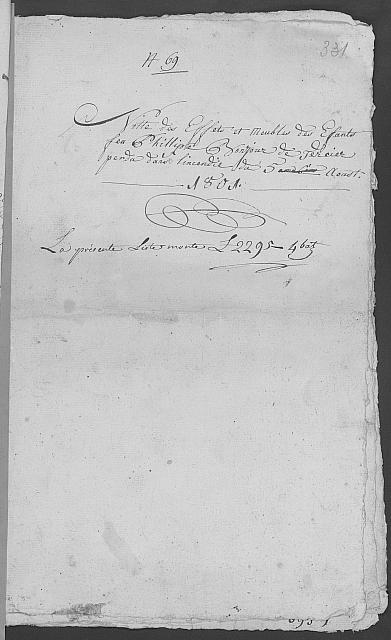 331
N 69
Notte des Effets et meubles des Efants
feu Phillippe Bonjour de
perdu dans l'incendie du 5 Aoust
1801.
La présente Liste monte L 2295 4 bat